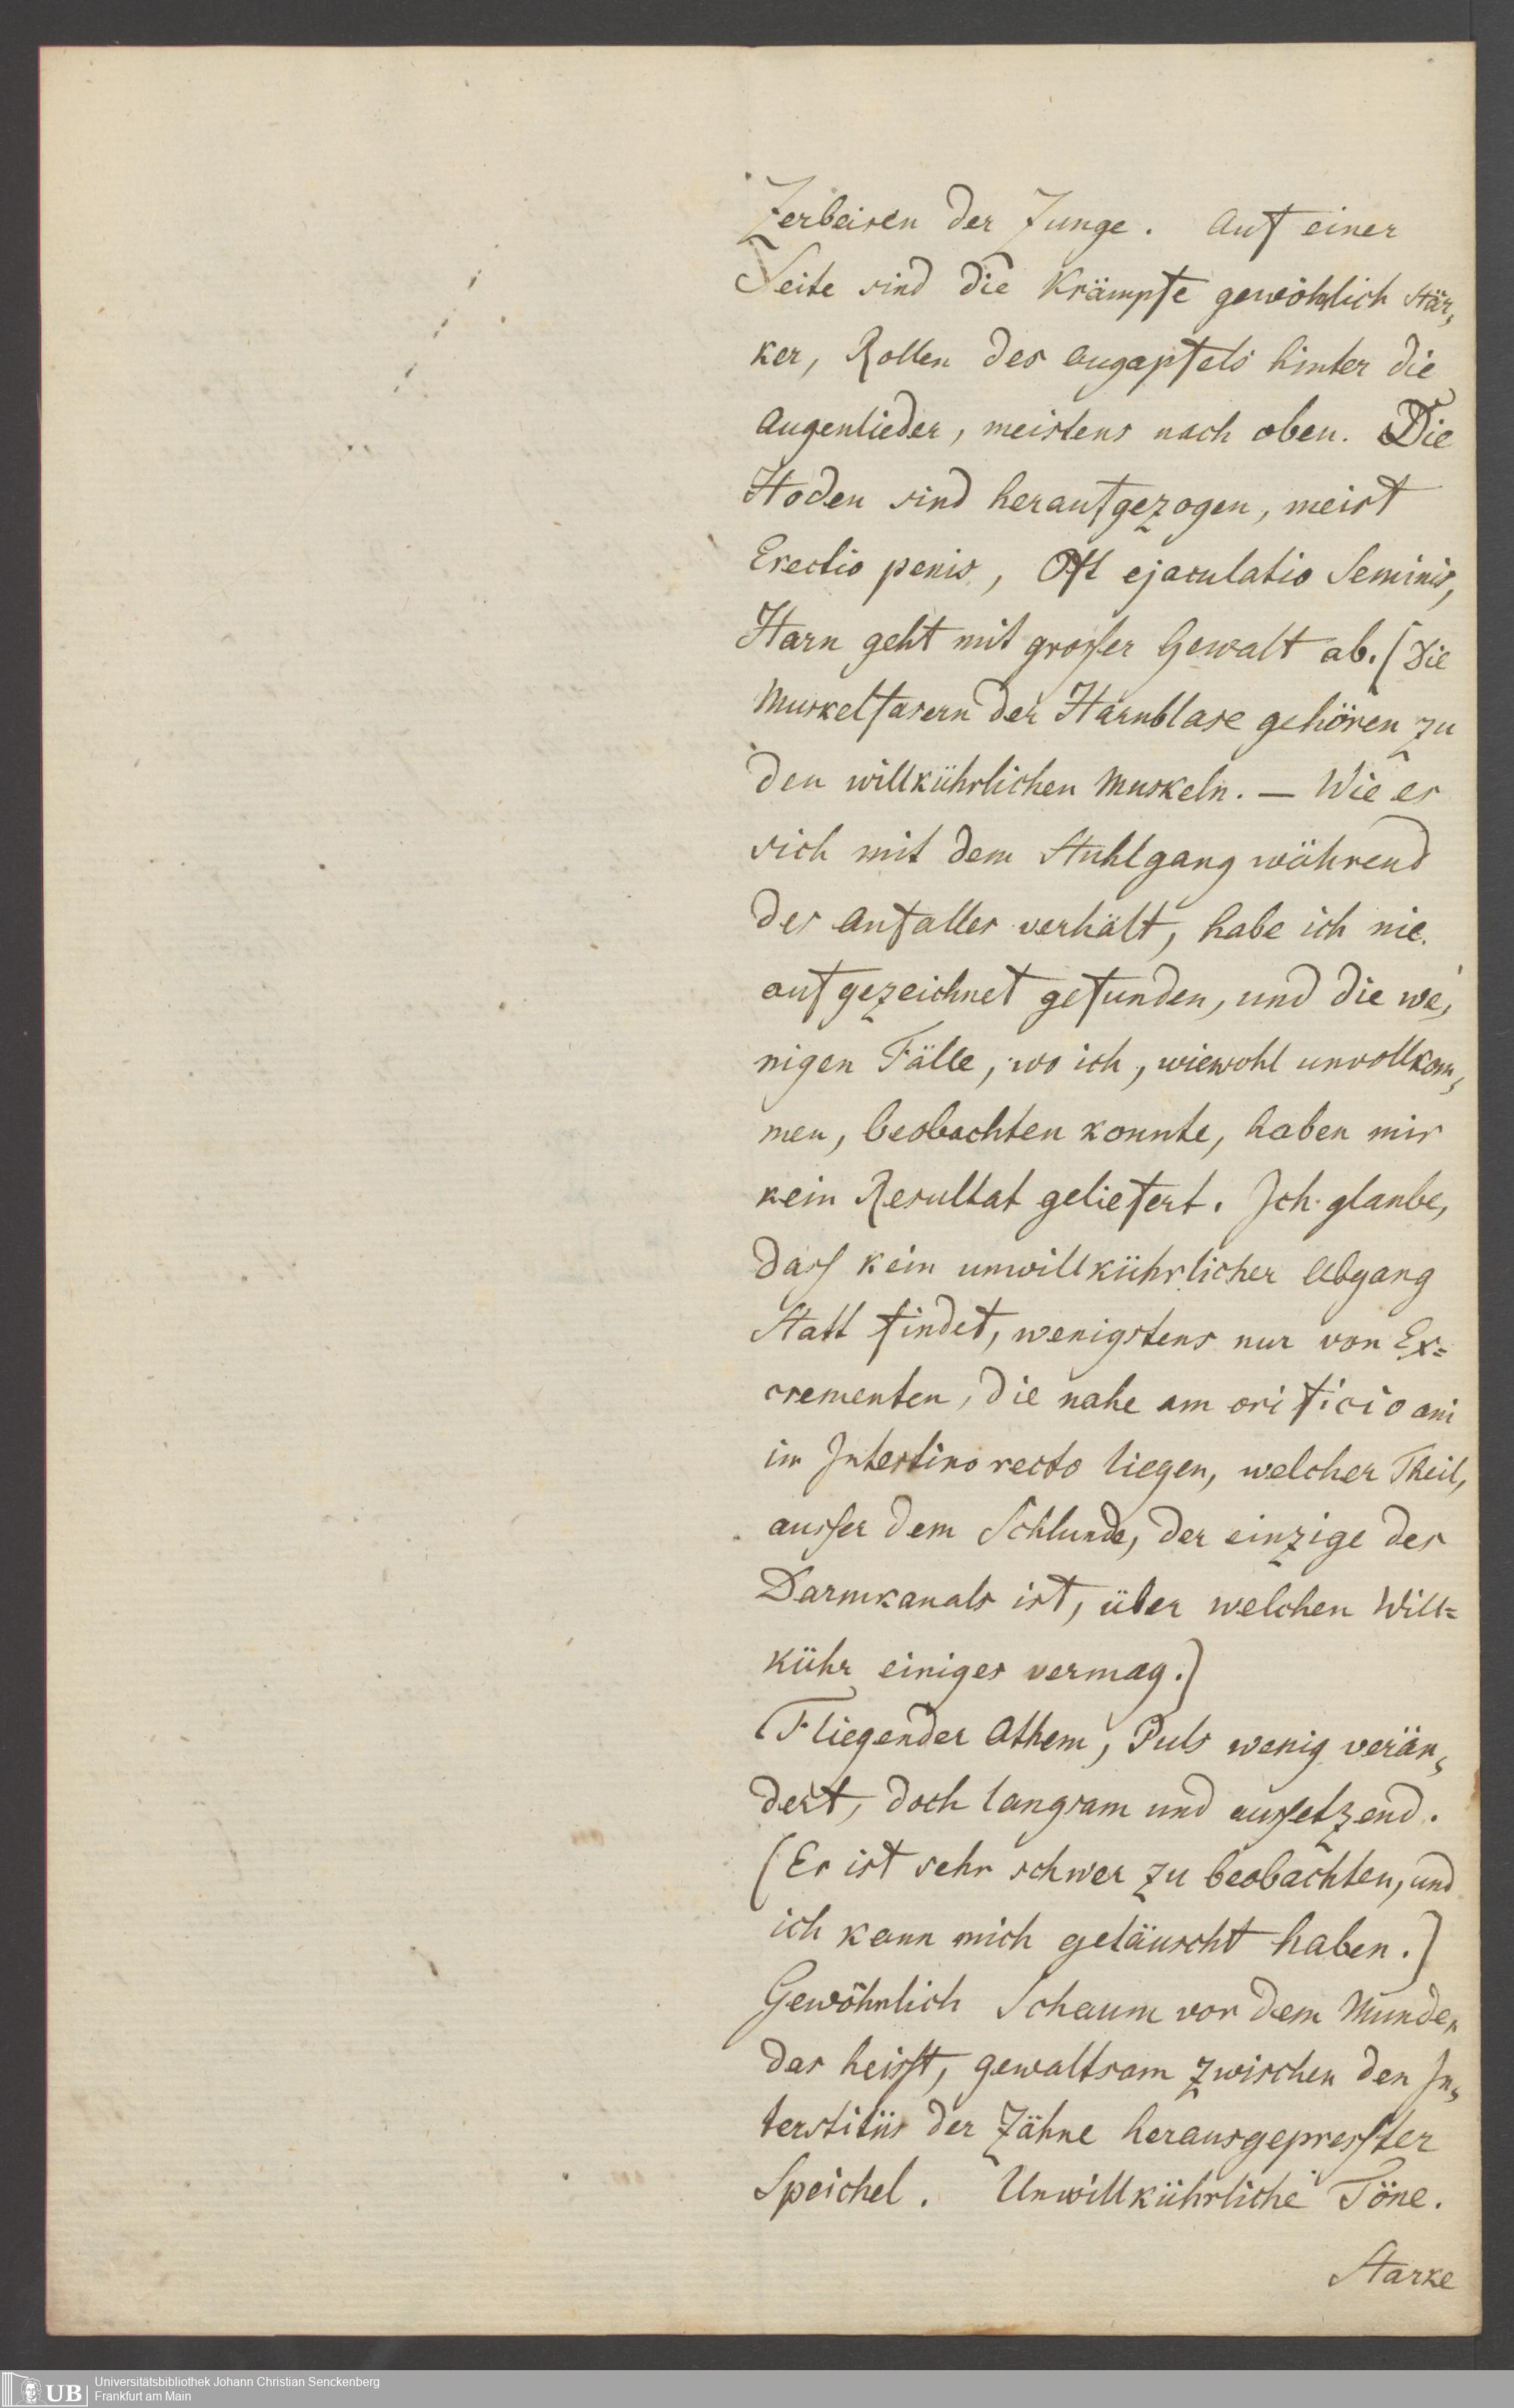 Zerbeisen der Zunge. Auf einer
Seite sind die Krämpfe gewöhnlich stär,
ker, Rollen des Augapfels hinter die
Augenlieder, meistens nach oben. Die
Hoden sind heraufgezogen, meist
Erectio penis, Oft ejaculatio Seminis,
Harn geht mit grosser Gewalt ab. (Die
Muskelfasern der Harnblase gehören zu
den willkührlichen Muskeln. — Wie es
sich mit dem Stuhlgang während
des Anfalles verhält, habe ich nie
aufgezeichnet gefunden, und die we,
nigen Fälle, wo ich, wiewohl unvollkom,
men, beobachten konnte, haben mir
kein Resultat geliefert. Ich glaube,
dass kein unwillkührlicher Abgang
Statt findet, wenigstens nur von Ex=
crementen, die nahe am orificio ani
im Intestino recto liegen, welcher Theil,
ausser dem Schlunde, der einzige des
Darmkanals ist, über welchen Will=
kühr einiges vermag.)
Fliegender Athem, Puls wenig verän,
dert, doch langsam und aussetzend.
(Er ist sehr schwer zu beobachten, und
ich kann mich getäuscht haben.)
Gewöhnlich Schaum vor dem Munde,
das heisst, gewaltsam zwischen den In,
terstitiis der Zähne herausgepresster
Speichel. Unwillkührliche Töne.
Starke
UB
Universitätsbibliothek Johann Christian Senckenberg
Frankfurt am Main